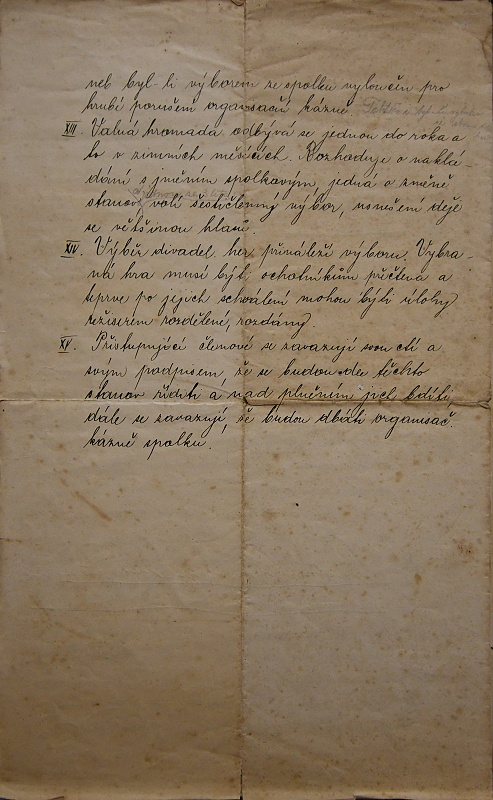 neb byl-li výborem ze spolku vyloučen pro
hrubé porušení organisační kázně.
XIII. Valná hromada odbývá se jednou do roka a
to v zimních měsících. Rozhoduje o naklá-
dání s jměním spolkovým, jedná o změně
stanov, volí šestičlenný výbor, usnešení děje
se většinou hlasů.
XIV. Výběr divadel. her přináleží výboru. Vybra-
ná hra musí býti ochotníkům přečtena a
teprve po jejich schválení mohou býti úlohy
režiserem rozdělené, rozdány.
XV. Přistupující členové se zavazují svou ctí a
svým podpisem, že se budou dle těchto
stanov říditi a nad plněním jich bdíti,
dále se zavazují, že budou dbáti organisač.
kázně spolku.